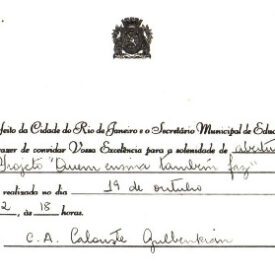 feito da Cidade do Rio de Janeiro e o Secretário Municipal de Educ
razer de convidar Vossa Excelência para a solenidade de abertu
Projeto "Quem ensina também faz"
realizada no dia 19 de outubro
2, às 18 horas.
C. A. Calouste Gulbenkian